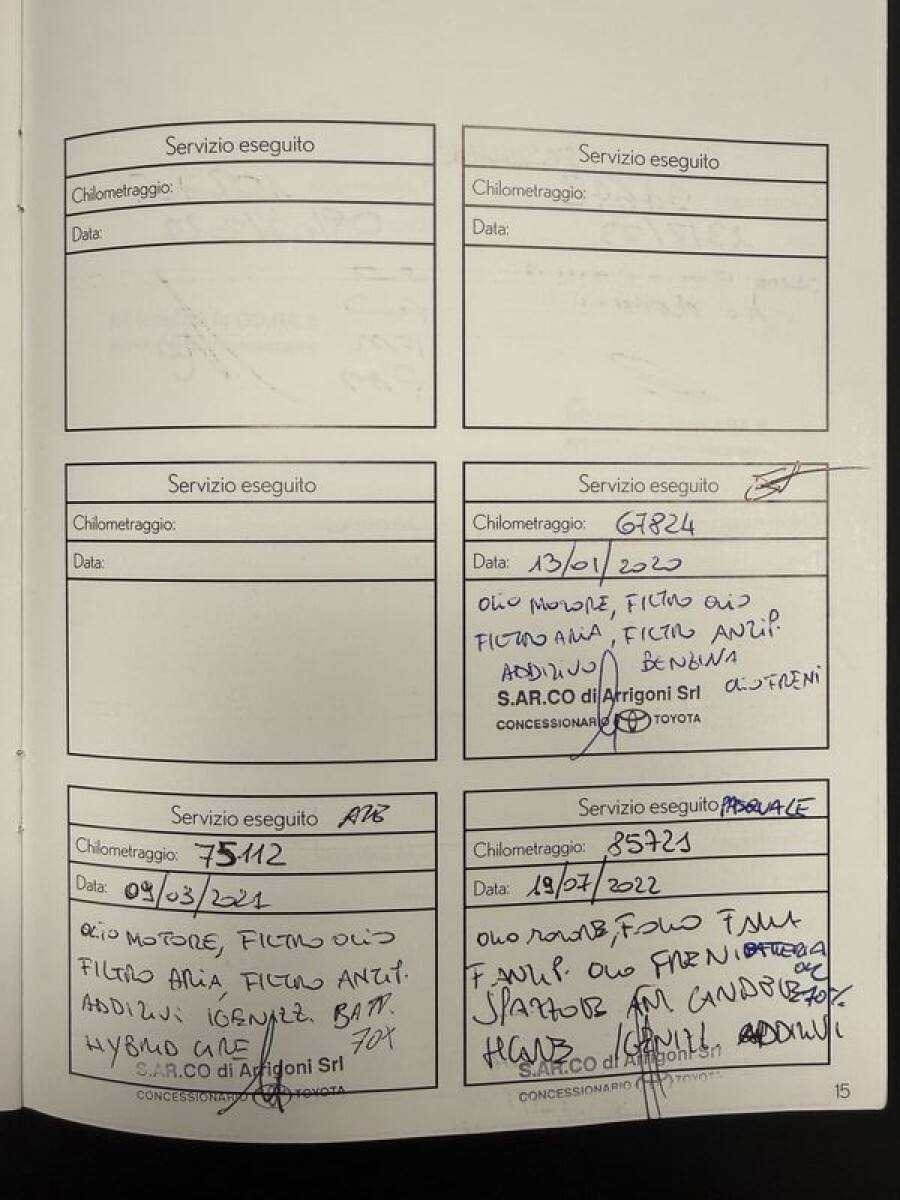 Servizio eseguito
Chilometraggio:
Data:
Servizio eseguito
Chilometraggio:
Data:
Servizio eseguito
Chilometraggio:
Data:
Servizio eseguito
Chilometraggio: 67824
Data: 13/01/2020
OLIO MOTORE, FILTRO OLIO
FILTRO ARIA, FILTRO ANTIP.
ADDITIVO BENZINA
OLIO FRENI
S.AR.CO di Arrigoni Srl
CONCESSIONARIO TOYOTA
Servizio eseguito
Chilometraggio: 75112
Data: 09/03/2021
OLIO MOTORE, FILTRO OLIO
FILTRO ARIA, FILTRO ANTIP.
ADDITIVI IGENIZZ. BATT.
HYBRID CARE 70%
S.AR.CO di Arrigoni Srl
CONCESSIONARIO TOYOTA
Servizio eseguito PASQUALE
Chilometraggio: 85721
Data: 19/07/2022
OLIO MOTORE, F.OLIO F.
F. ANTIP. OLIO FRENI BATTERIA
SPAZZOLE CANDELE 70%
IGENIZZ. ADDITIVI
S.AR.CO di Arrigoni Srl
CONCESSIONARIO TOYOTA
15